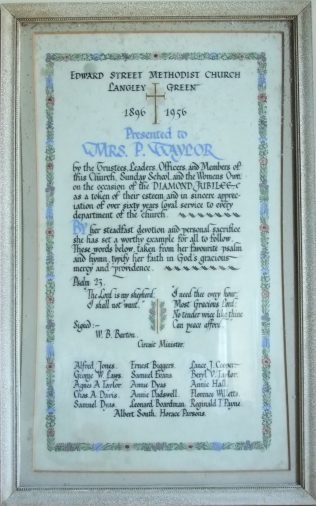 EDWARD STREET METHODIST CHURCH
LANGLEY GREEN
1896 1956
Presented to
MRS. P. TAYLOR
by the Trustees, Leaders, Officers, and Members of
this Church, Sunday School, and the Womens Own
on the occasion of the DIAMOND JUBILEE
as a token of their esteem and in sincere apprec-
iation of over sixty years loyal service to every
department of the church.
By her steadfast devotion and personal sacrifice
she has set a worthy example for all to follow.
These words below, taken from her favourite psalm
and hymn, typify her faith in God's gracious
mercy and providence.
Psalm 23.
"The Lord is my shepherd,
I shall not want."
"I need thee every hour,
Most Gracious Lord;
No tender voice like thine
Can peace afford."
Signed:-
W. B. Barton.
Circuit Minister.
Alfred Jones. Ernest Biggers. Lance J. Cooper.
George W. Laws. Samuel Evans. Beryl V. Taylor.
Agnes A. Taylor. Annie Dyas. Annie Hall.
Chas. A. Davis. Annie Dadswell. Florence Willetts.
Samuel Dyas. Leonard Boardman. Reginald T. Payne.
Albert South. Horace Parsons.